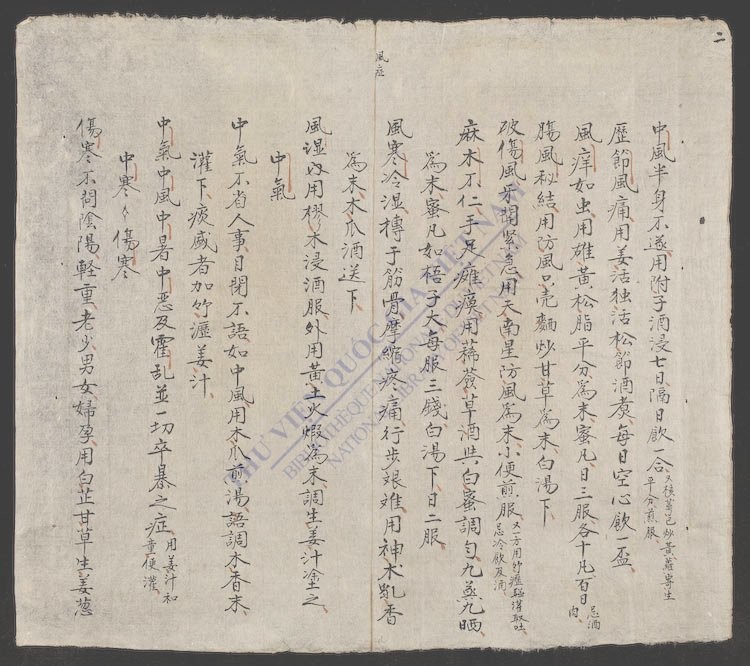 二
中風半身不遂用附子酒浸七日隔日飲一合
平分煎服
歷節風痛用羌活独活松節酒煮每日空心飲一盃
風痒如虫用雄黃松脂平分為末蜜凡日三服各十凡百日忌酒肉
腸風秘結用防風只壳麵炒甘草為末白湯下
破傷風牙関緊急用天南星防風為末小便煎服
忌冷飲及酒
麻木不仁手足癱瘓用蒔薟草酒共白蜜調勻九蒸九晒
為末蜜凡如梧子大每服三錢白湯下日二服
風症
風寒冷湿摶于筋骨摩縮疼痛行步艰难用神木乳香
為末木瓜酒送下
風湿内用樛木浸酒服外用黃土火煆為末調生姜汁塗之
中氣
中氣不省人事目閉不語如中風用木瓜煎湯語調木香末
灌下痰盛者加竹瀝姜汁
中氣中風中暑中恶及霍乱並一切卒暴之症用姜汁和童便灌
中寒々傷寒
傷寒不問陰陽軽重老少男女婦孕用白芷甘草生姜葱
THƯ VIỆN QUỐC GIA VIỆT NAM
BIBLIOTHÈQUE NATIONALE DU VIETNAM
NATIONAL LIBRARY OF VIETNAM